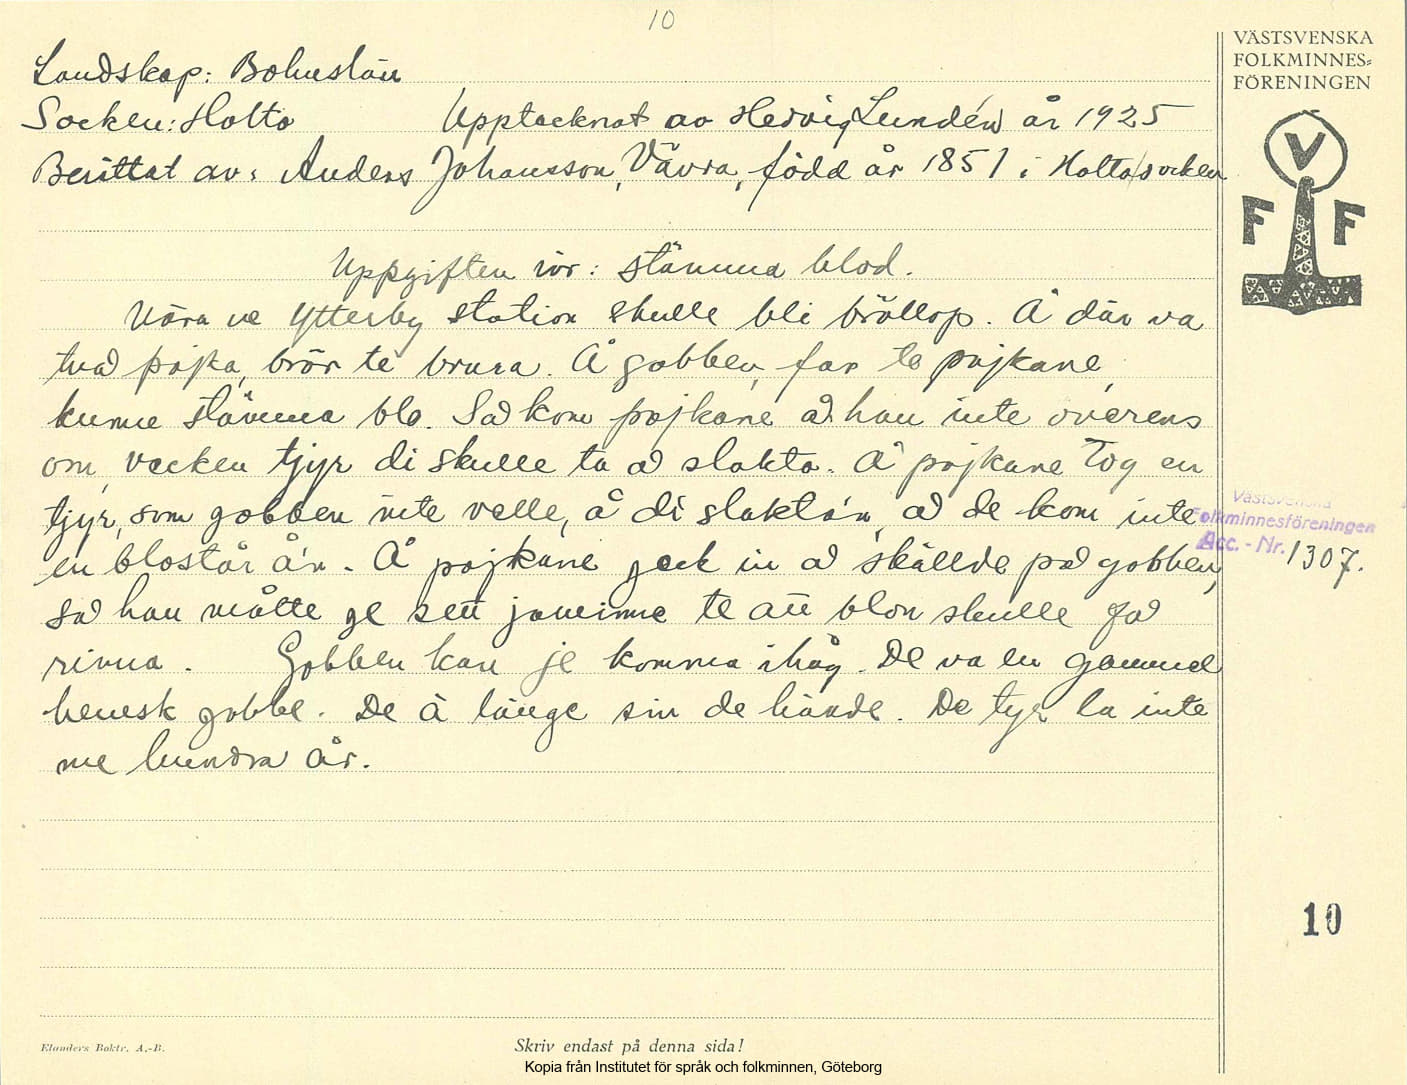 10
VÄSTSVENSKA
FOLKMINNES-
FÖRENINGEN
V
F F
Landskap: Bohuslän
Socken: Holta Upptecknat av Hedvig Lundén år 1925
Berättat av: Anders Johansson, Vävra, född år 1851 i Holta socken
Uppgiften rör: stämma blod.
Våra ve Ytterby station skulle bli bröllop. Å där va
två påjka, brör te brura. Å gobben, far te påjkane,
kunne stämma blo. Så kom påjkane å han inte överens
om, vecken tjyr di skulle ta å slakta. Å påjkane tog en
tjyr, som gobben inte velle, å di slakta'n, å de kom inte
en blostår å'n. Å påjkane geck in å skällde på gobben,
så han måtte ge sett jaminne te att blon skulle få
rinna. Gobben kan je komma ihåg. De va en gammel
henesk gobbe. De ä länge sin de hände. De tyr la inte
me hundra år.
Västsvenska
Folkminnesföreningen
Acc. - Nr. 1307.
10
Elanders Boktr. A.-B.
Skriv endast på denna sida!
Kopia från Institutet för språk och folkminnen, Göteborg